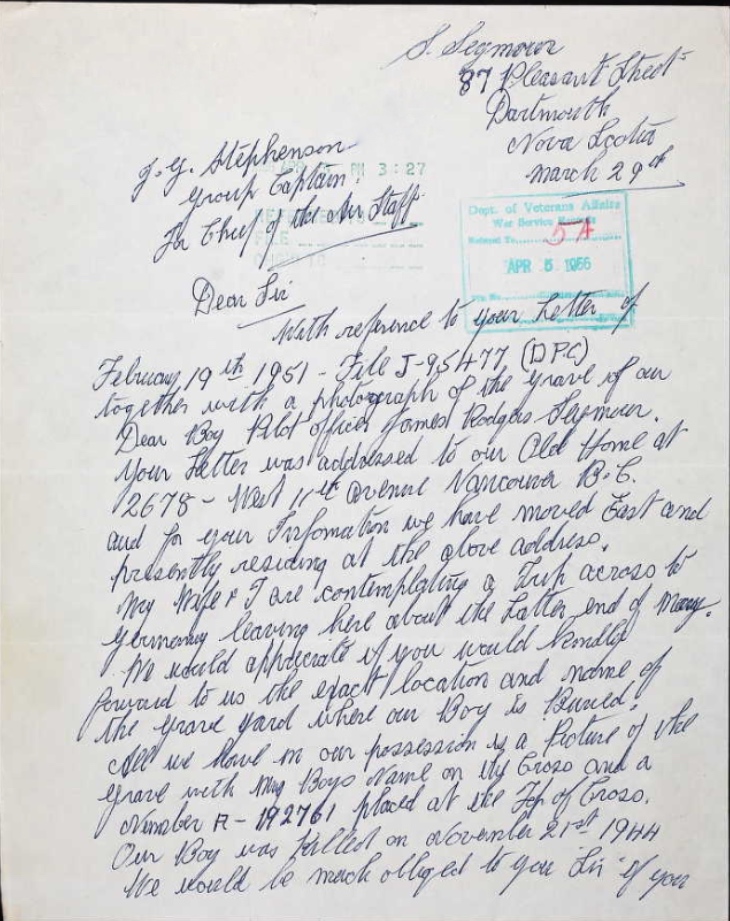 S. Seymour
87 Pleasant Street
Dartmouth
Nova Scotia
March 29th
J. G. Stephenson
Group Captain.
For Chief of the Air Staff
PM 3:27
REFER
FILE
Dept. of Veterans Affairs
War Service Records
5A
APR 5 1956
Dear Sir
With reference to your Letter of
February 19th 1951 - File J-95477 (DPC)
together with a photograph of the grave of our
Dear Boy Pilot officer James Rodgers Seymour.
Your Letter was addressed to our Old Home at
2678 - West 11th Avenue Vancouver B.C.
and for your Information we have moved East and
presently residing at the above address.
My Wife & I are contemplating a Trip across to
Germany leaving here about the Latter end of May.
We would appreciate if you would kindly
forward to us the exact location and name of
the grave yard where our Boy is Buried.
All we have in our possession is a Picture of the
grave with My Boys Name on the Cross and a
Number R-192761 placed at the Top of Cross.
Our Boy was killed on November 21st 1944
We would be much obliged to you Sir if you